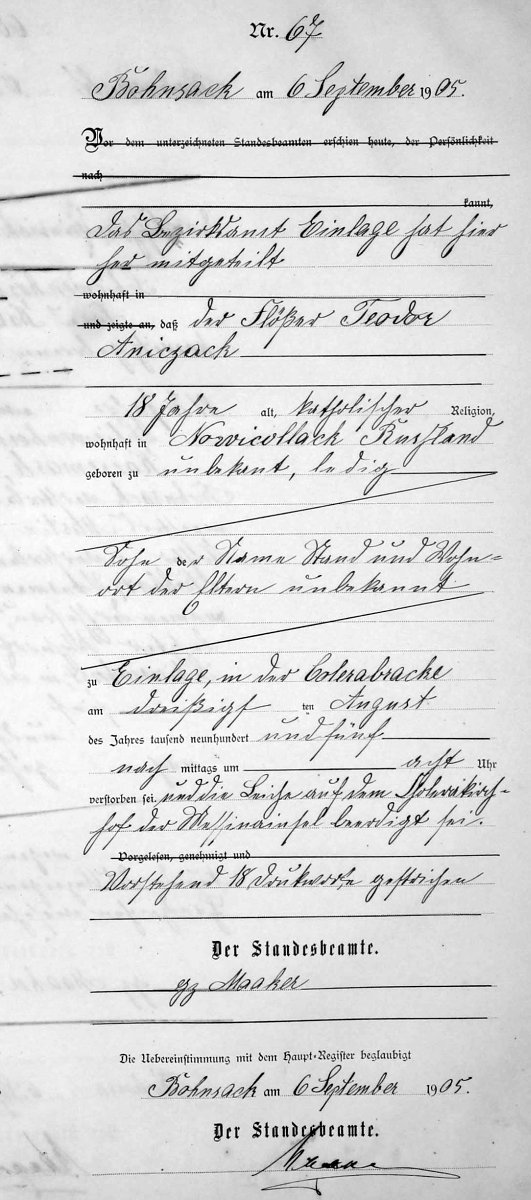 Nr. 67
Bohnsack am 6 September 1905.
Vor dem unterzeichneten Standesbeamten erschien heute, der Persönlichkeit
nach
kannt,
das Bezirksamt Einlage hat hier
her mitgeteilt
wohnhaft in
und zeigte an, daß der Flößer Teodor
Aniczack
18 Jahre alt, katholischer Religion,
wohnhaft in Nowicollack Rußland
geboren zu unbekant, ledig
Sohn der Name Stand und Wohn=
ort der Eltern unbekannt
zu Einlage, in der Colerabracke
am dreißigs ten August
des Jahres tausend neunhundert und fünf
nach mittags um acht Uhr
verstorben sei und die Leiche auf dem Cholerakirch-
hof der Messinainsel beerdigt sei.
Vorgelesen, genehmigt und
Vorstehend 18 Druckworte gestrichen
Der Standesbeamte.
gz Maaker
Die Uebereinstimmung mit dem Haupt-Register beglaubigt
Bohnsack am 6 September 1905.
Der Standesbeamte.